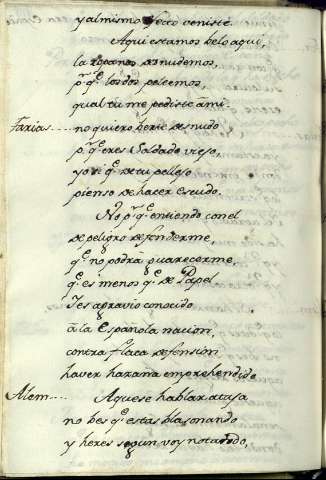 y al mismo efeto veniste
Aqui estamos belo aqui,
la ropa nos desnudemos,
p.r q.e los dos peleemos,
qual tu me pediste ami.
Farias.... no quiero berte desnudo
p.r q.e eres Soldado viejo,
y de q.e de tu pellejo
pienso de hacer Escudo.
No p.r q.e entiendo con el
de peligro defenderme,
q.e no podrà guarecerme,
q.e es menos q.e de Papel
Y es agravio conocido
à la Española nacion,
contra flaca defension
haver hazaña emprehendido
Alem.... Aquese hablar atasa
no bes q.e estas blasonando
y heres segun voy notando,